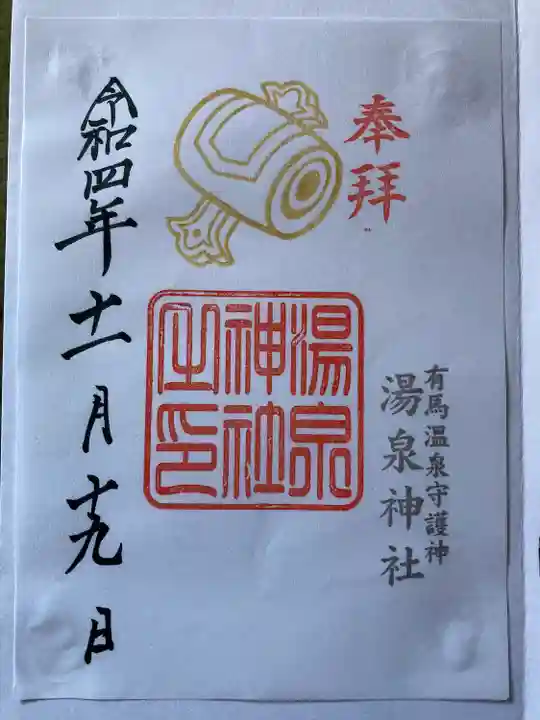 奉拝
有馬温泉守護神
湯泉神社
湯泉
神社
之印
令和四年十一月十九日